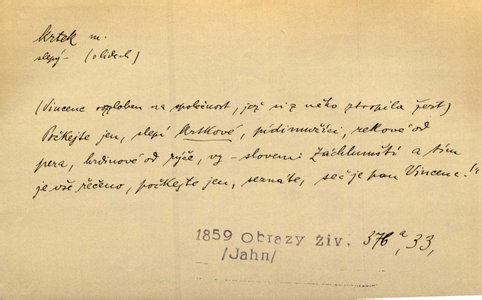 krtek m.
slepý – (o lidech)
(Vincenc rozzloben na společnost, jež si z něho ztropila žert)
Počkejte jen, slepí krtkové, pidimužíci, rekové od
pera, hrdinové od rýče, vy – slovení Záchlumští a tím
je vše řečeno, počkejte jen, seznáte, seč je pan Vincenc!"
1859 Obrazy živ. 376 a, 33,
/Jahn/